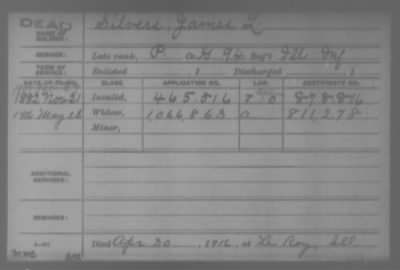 DEAD
NAME OF SOLDIER: Silvers, James L
SERVICE: Late rank, P. Co. G 94 Reg't Ill Inf
TERM OF SERVICE: Enlisted , 1 Discharged , 1
DATE OF FILING. CLASS. APPLICATION NO. LAW. CERTIFICATE NO.
1882 Nov 21 Invalid, 465,516
1916 May 26 Widow, 1,066,863 O 811,278
Minor,
ADDITIONAL SERVICES:
REMARKS:
Died Apr 30, 1916, at Le Roy, Ill